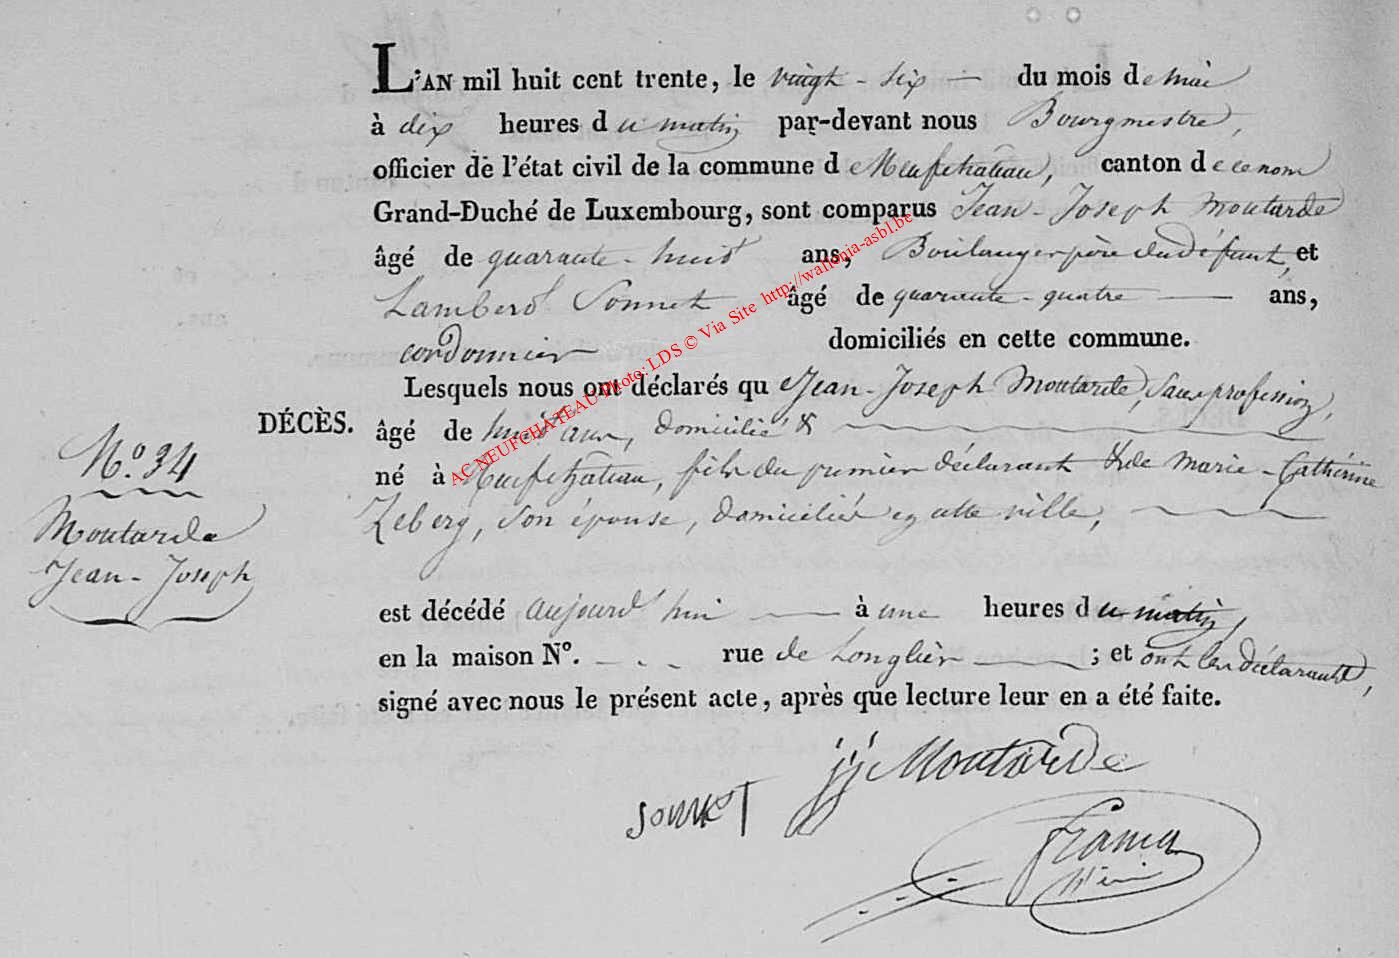 L'AN mil huit cent trente, le vingt-six du mois de mai
à dix heures du matin par-devant nous Bourgmestre,
officier de l'état civil de la commune de Neufchâteau, canton de ce nom
Grand-Duché de Luxembourg, sont comparus Jean-Joseph Moutarde
âgé de quarante-huit ans, Boulanger père du défunt, et
Lambert Sonnet âgé de quarante-quatre ans,
cordonnier domiciliés en cette commune.
Lesquels nous ont déclarés que Jean-Joseph Moutarde, sans profession,
DÉCÈS. âgé de huit ans, domicilié &
né à Neufchâteau, fils du premier déclarant & de Marie-Cathérine
Zeberg, son épouse, domiciliés en cette ville,
N.° 34
Moutarde
Jean-Joseph
est décédé aujourd'hui à une heures du matin,
en la maison N°. rue de Longlier ; et ont les déclarants,
signé avec nous le présent acte, après que lecture leur en a été faite.
jj Moutarde
sonnet
AC NEUFCHATEAU Photo: LDS © Via Site http://wallonia-asbl.be